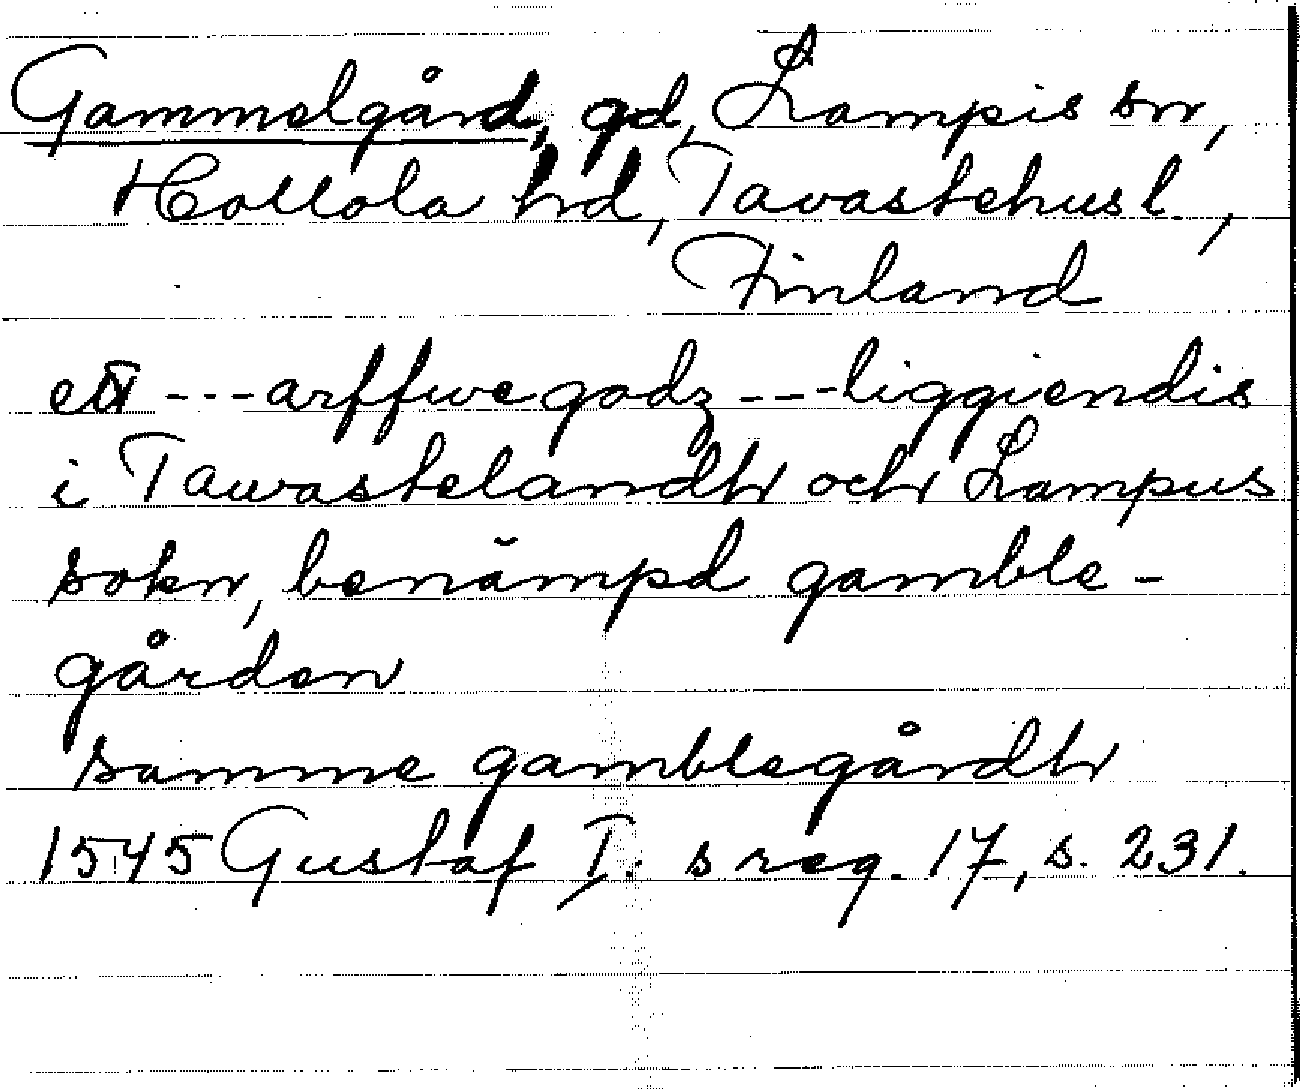 Gammelgård, gd, Lampis sn,
Hollola hd, Tavastehus l.,
Finland
ett --- arffwegodz --- liggiendis
i Tawastelandh och Lampus
sokn, benämpd gamble-
gården
samme gamblegårdh
1545 Gustaf I: s reg. 17, s. 231.